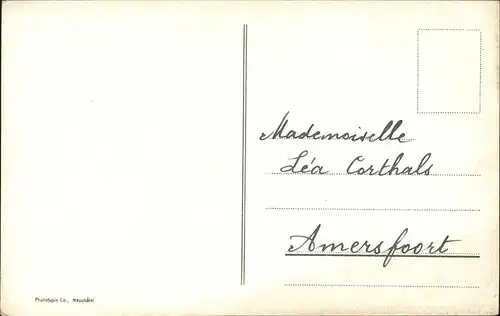 Mademoiselle
Léa Corthals
Amersfoort
Phototypie Co., Neuchâtel